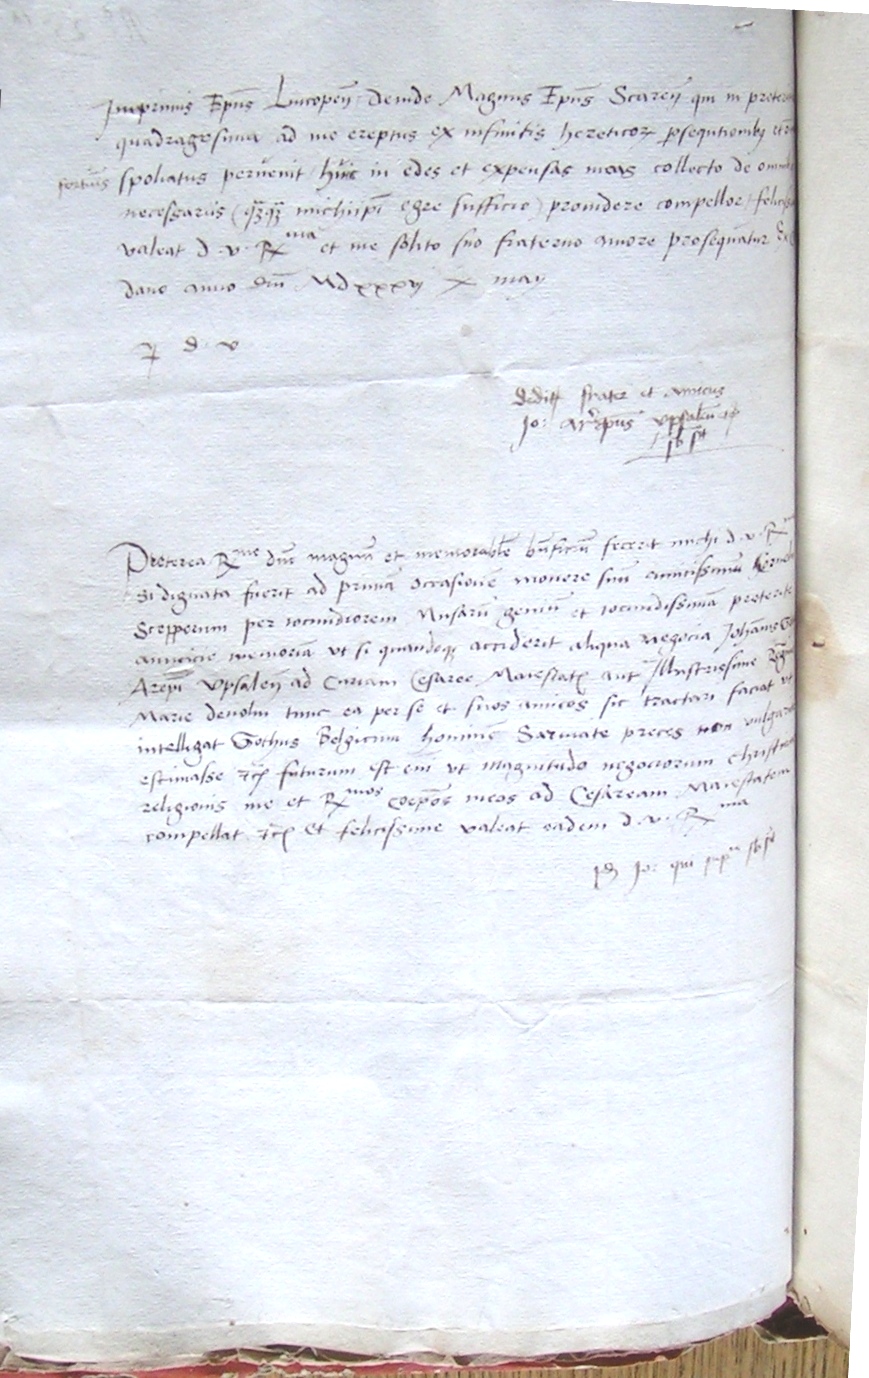 Imprimis Ep̄us Lincopen̄ deinde Magnus Ep̄us Scaren̄ qui in preter
quadragesima ad me ereptus ex infinitis hereticoꝝ ꝑsequtionibꝫ
spoliatus pervenit / huic in edes et expensas meas collecto de
necessariis (michiipi egre sufficio) providere compellor /
valeat d. v. R ma et me solito suo fraterno amore prosequatur
dano anno dnī Mdxxxvj X may
d. v
deditꝰ frater et amicus
Jo: Ar.epūs vpsalen̄
sb̄ st̄
Preterea R me dn̄e magnū et memorabile bn̄ficiū fecerit michi d. v. R
si dignata fuerit ad primā occasionē monere suū amicissimū
Scepperum per iocundiorem Musarū geniū et iocundissimā preterite
amicicie memoriā vt si quandoqꝫ acciderit aliqua negocia Johannis
Arepi Vpsalen̄ ad Curiam Cesaree Maiestatꝭ aut Illustrissime
Marie devolvi tunc ea per se et suos amicos sic tractari faciat vt
intelligat Gothus Belgicum hominē Sarmate preces non
estimasse ꝛcꝭ futurum est eni vt magnitudo negociorum
religionis me et R mos coepōs meos ad Cesaream Maiestatem
compellat ꝛcꝭ Et felicissime valeat eadem d. v. R ma
Jo: qui